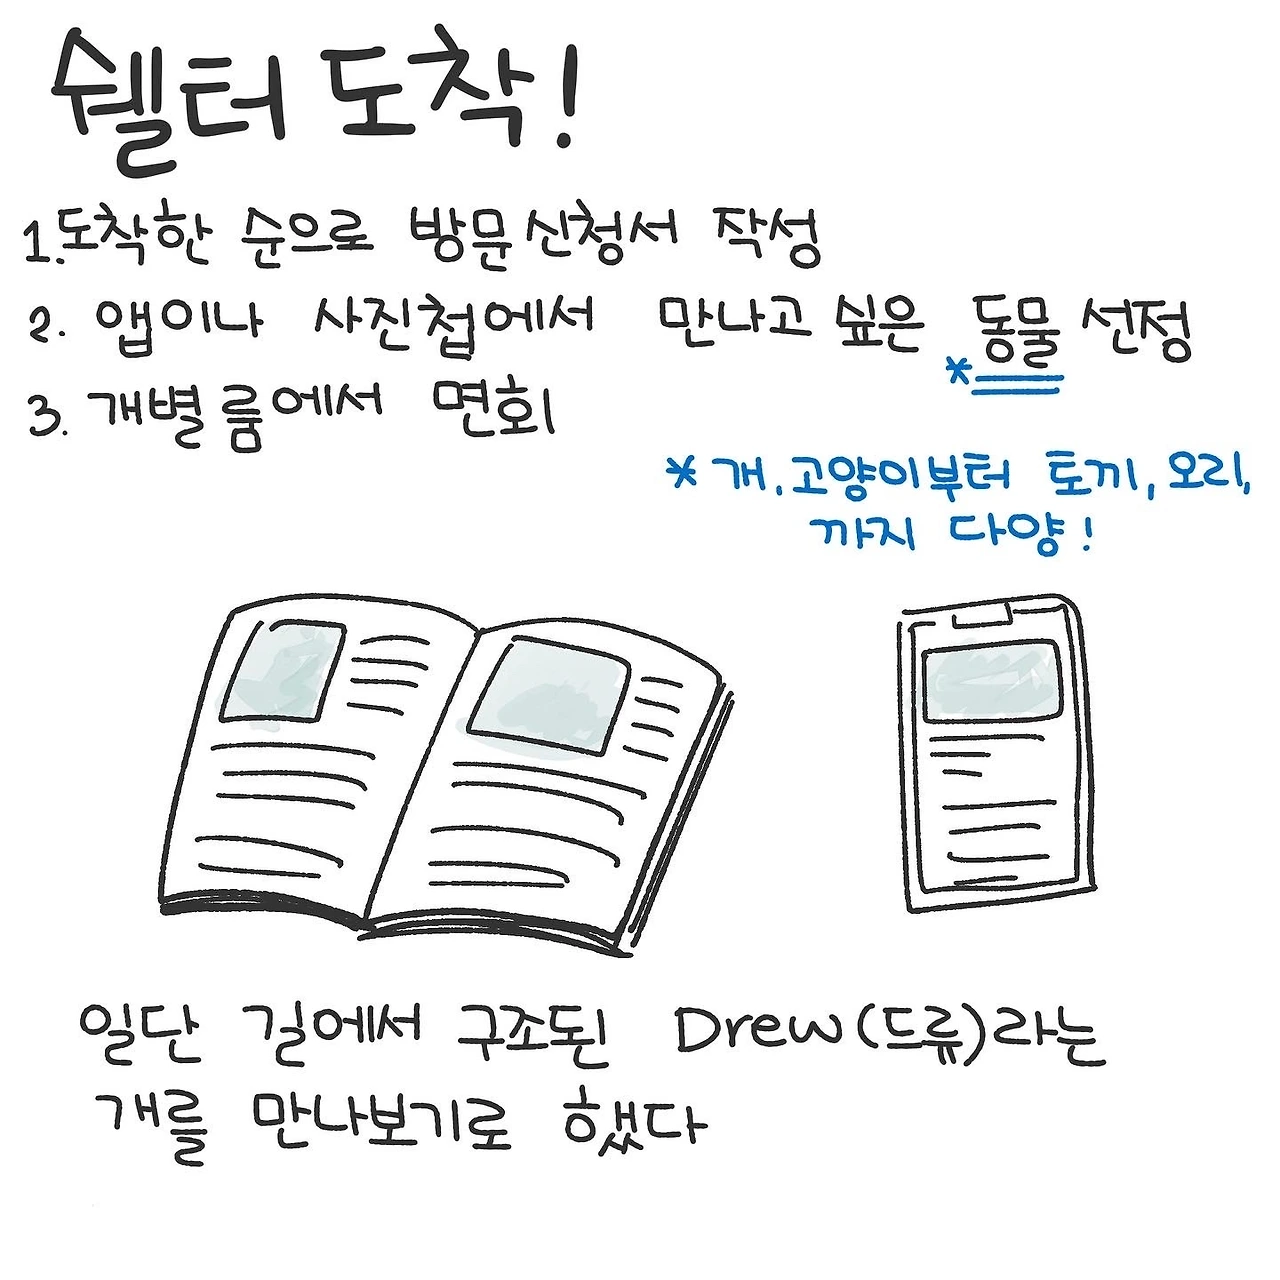 쉘터 도착!
1.도착한 순으로 방문신청서 작성
2. 앱이나 사진첩에서 만나고 싶은 동물 선정
3. 개별룸에서 면회
* 개.고양이부터 토끼, 오리,
까지 다양!
일단 길에서 구조된 Drew(드류)라는
개를 만나보기로 했다